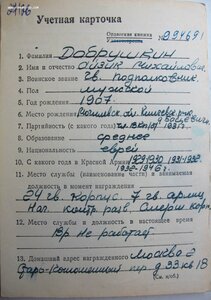 Учетная карточка
Орденская книжка № 994691
1. Фамилия Добрушкин
2. Имя и отчество Айзик Михайлович
3. Воинское звание гв. подполковник
4. Пол мужской
5. Год рождения 1907.
6. Место рождения
7. Партийность (с какого года) чл. ВКП(б) 1931 г.
8. Образование среднее
9. Национальность еврей
10. С какого года в Красной Армии 1929-1930
11. Место службы (наименование части) и занимаемая
должность в момент награждения
24 гв. корпус. 7 гв. армии
Нач. контр. раз. Смерш корп.
12. Место службы и должность в настоящее время
Вр. не работает
13. Домашний адрес награжденного Москва
пер. д. 33 кв. 18
(См. на об.)